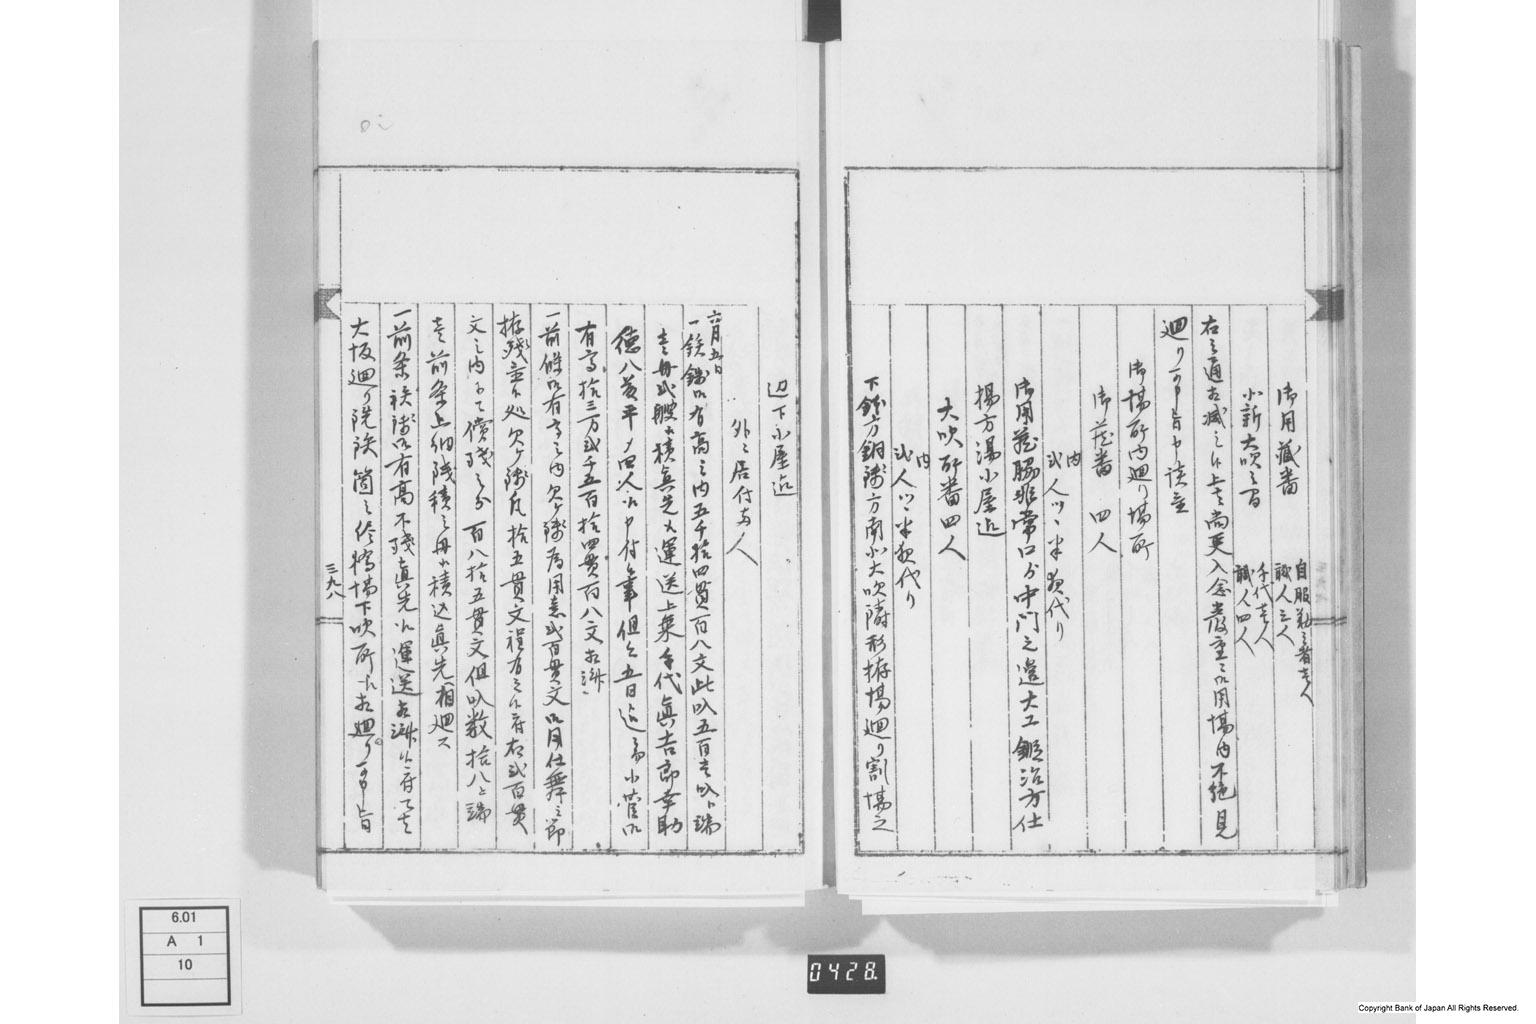 自服新之者壱人
御用蔵番 職人三人
手代壱人
小新大吹之間 職人四人
右之通相減之候上者尚更入念厳重ニ御用場内不絶見
廻り可申旨申談置
御場所内廻り場所
御蔵番 四人
内
弐人ツヽ半夜代り
御用蔵脇非常口ゟ中門之邊大工鍛治方仕
揚方湯小屋迄
大吹所番四人
内
弐人ツヽ半夜代り
下銭方銅銭方南小大吹隣形拵場廻り割場之
辺下小屋迄
外ニ居付両人
六月五日
一鉄銭御有高之内五千拾四貫百八文此叺五百壱叺ト端
壱舟弐艘江積真先江運送上乗手代真吉郎幸助
徳八茂平〆四人江申付候事但今五日迄ニ而小菅御
有高拾三万弐千五百拾四貫百八文相済
一前條御有高之内欠ヶ銭為用意弐百貫文御用仕舞之節
拵残置候処欠ヶ銭凡拾五貫文程有之候ニ付右弐百貫
文之内ニて償残之分百八拾五貫文但叺数拾八ト端
壱前条上納残積之舟江積込真先江相廻ス
一前条鉄銭御有高不残真先江運送相済候ニ付而者
大坂廻り洗鉄箇之終橋場下吹所江相廻り可申旨
三九八
6.01
A 1
10
0428.
Copyright Bank of Japan All Rights Reserved.